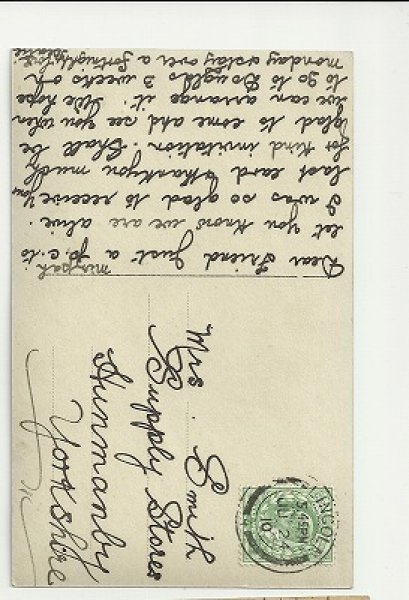 Dear Friend Just a p.c. to
let you know we are alive.
I was so glad to receive your
last card & thankyou much
for kind invitation. Shall be
glad to come and see you when
we can arrange it. We hope
to go to Douglas 3 weeks on
monday & stay over a fortnight. Love
Mrs. Smith
Supply Stores
Hunmanby
Yorkshire
LINCOLN
5.45PM
JU 24
10